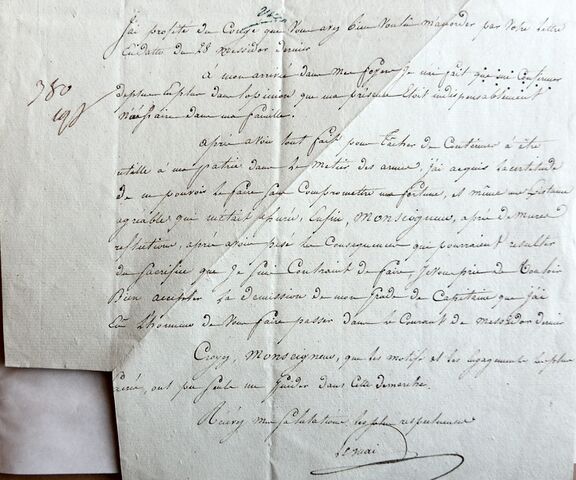 J'ai profité du Congé que vous avez bien voulu m'accorder par votre lettre
En datte du 28 messidor dernier
380
197
a mon arrivée dans mes foyers Je n'ai fait que me Confirmer
de plus En plus dans l'opinion que ma présence Etoit indispensablement
nécessaire dans ma famille.
après avoir tout fait pour tacher de Continuer à être
utille a ma patrie dans le metier des armes, j'ai acquis la certitude
de ne pouvoir le faire sans Compromettre ma fortune, et même une Existance
agréable qui m'était assurée, Enfin, Monseigneur, après de mures
reflections, après avoir pesé les Consequences qui pourraient resulter
du Sacrifice que Je suis Contraint de faire, Je vous prie de Vouloir
Bien accepter la demission de mon Grade de Capitaine que J'ai
Eu L'honneur de vous faire passer dans le Courant de messidor dernier
Croyez, Monseigneur, que les motifs et les Engagements les plus
sacrés, ont pu seuls me Guider dans Cette demarche.
Recevez mes salutations les plus respectueuses